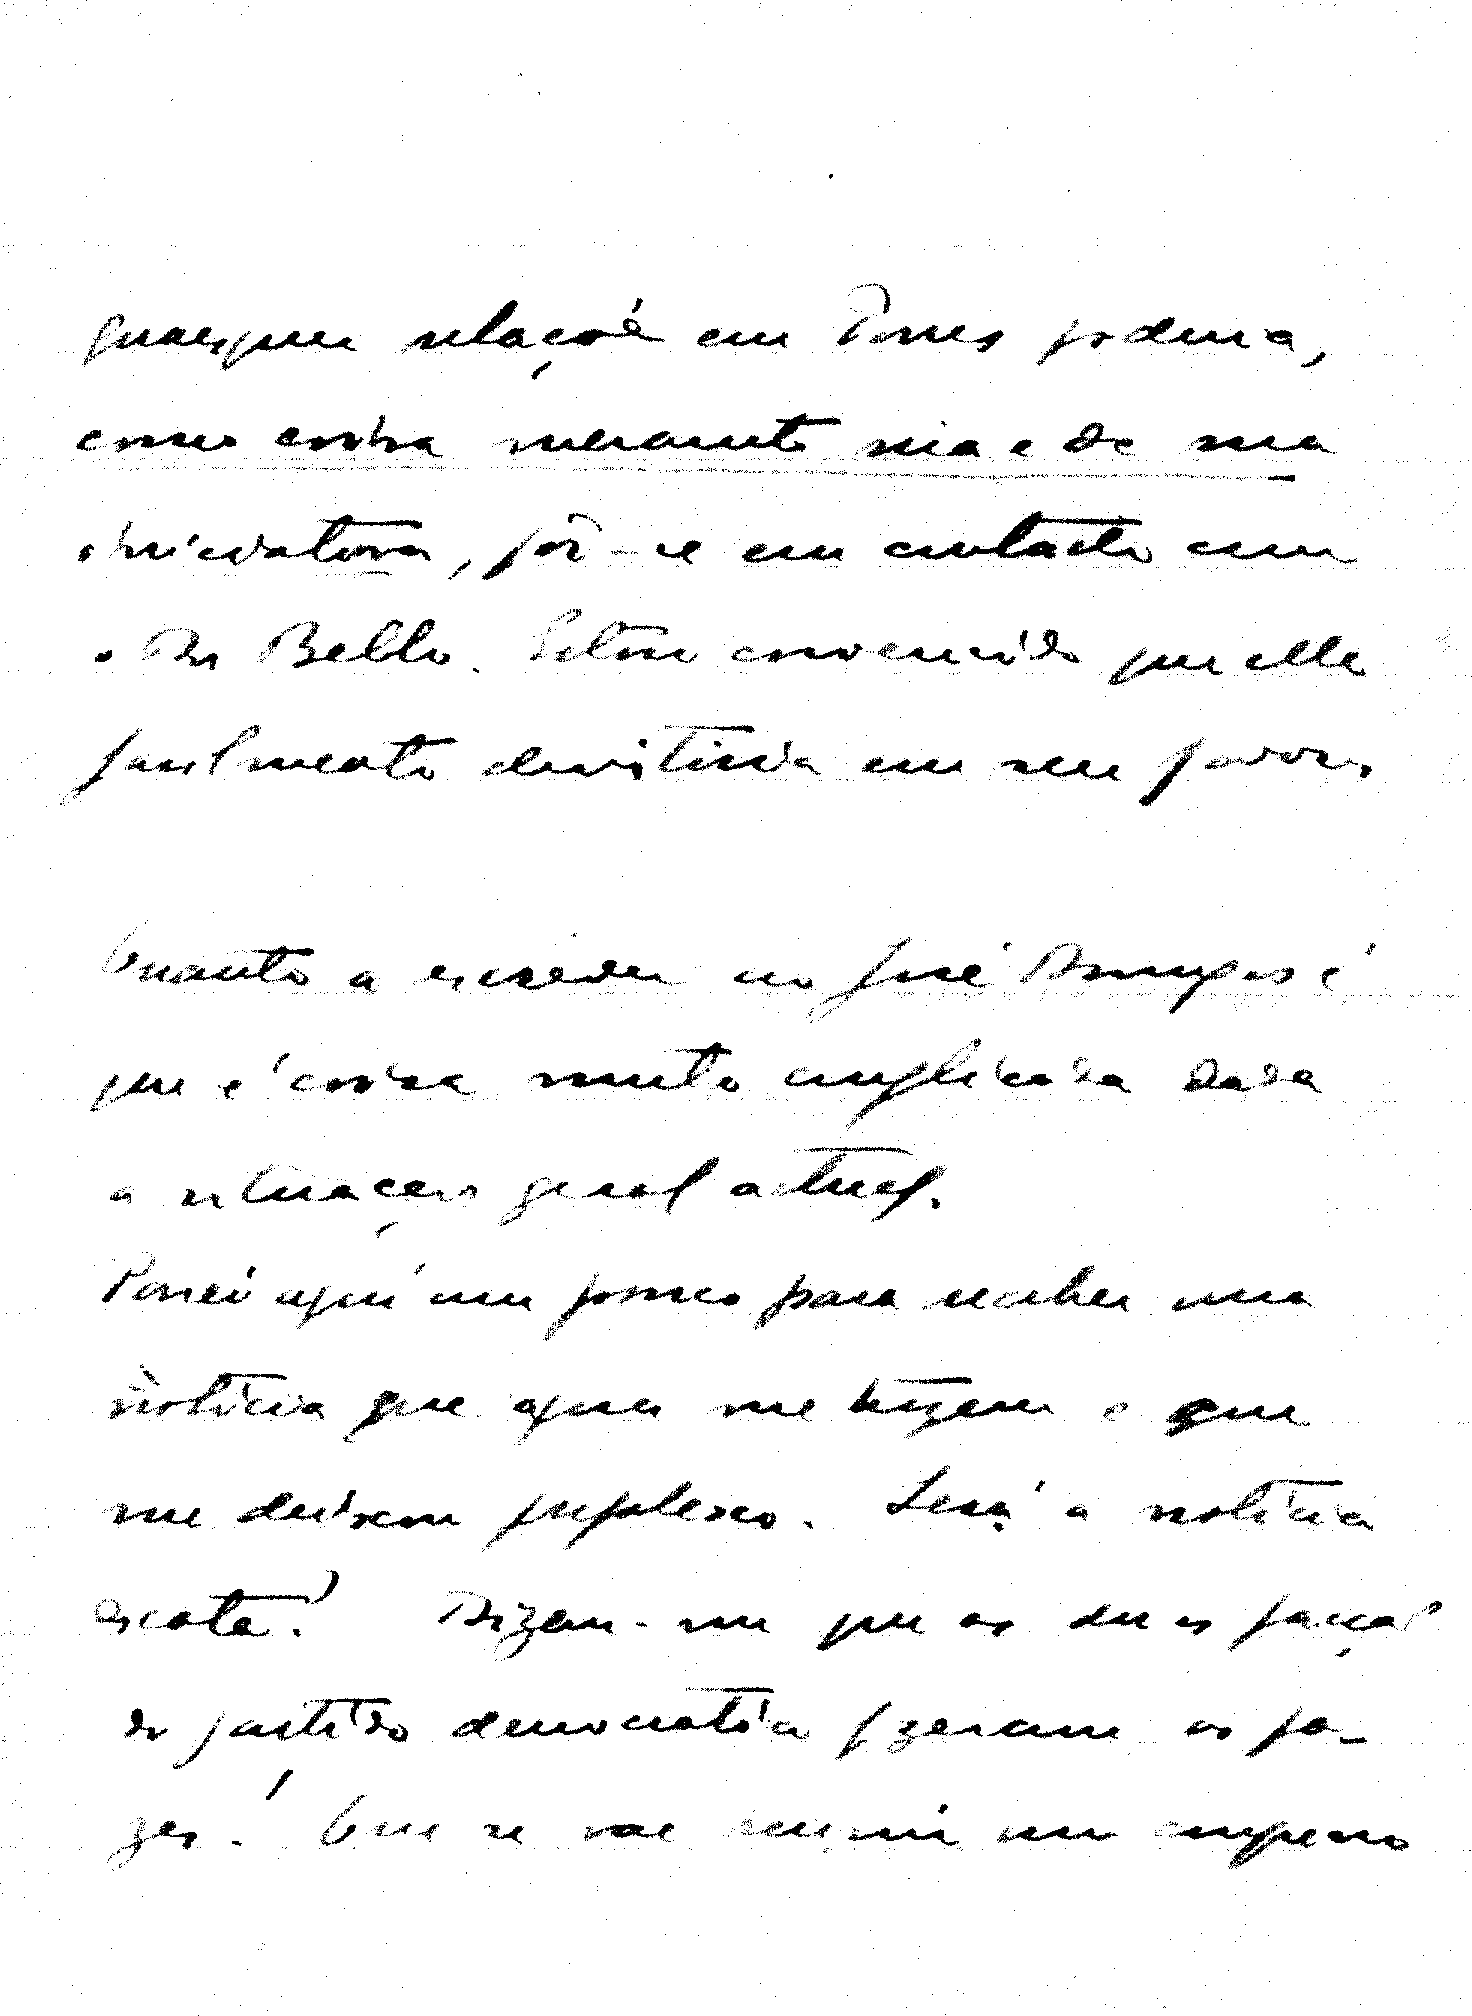 quaesquer relações em Torres poderia,
como coisa meramente sua e de sua
iniciativa, pôr-se em contacto com
o Dr Bello. Estou convencido que elle
facilmente desistiria em seu favor.
Quanto a escrever ao José Domingos é
que é coisa muito complicada dada
a situação geral actual.
Parei aqui um pouco para receber uma
noticia que agora me trazem e que
me deixou perplexo. Será a noticia
exata! Dizem-me que as duas facções
do partido democratico fizeram as pa-
zes! Que se vae reunir um congresso